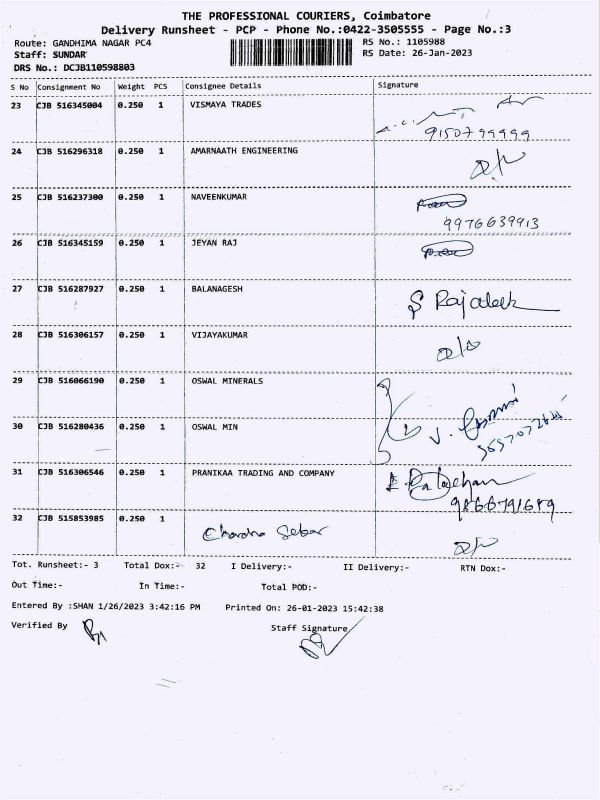 THE PROFESSIONAL COURIERS, Coimbatore
Delivery Runsheet - PCP - Phone No.:0422-3505555 - Page No.:3
Route: GANDHIMA NAGAR PC4 RS No.: 1105988
Staff: SUNDAR RS Date: 26-Jan-2023
DRS No.: DCJB110598803
S No Consignment No Weight PCS Consignee Details Signature
23 CJB 516345004 0.250 1 VISMAYA TRADES
9150799999
24 CJB 516296318 0.250 1 AMARNAATH ENGINEERING
25 CJB 516237300 0.250 1 NAVEENKUMAR
9976639913
26 CJB 516345159 0.250 1 JEYAN RAJ
27 CJB 516287927 0.250 1 BALANAGESH
28 CJB 516306157 0.250 1 VIJAYAKUMAR
29 CJB 516066190 0.250 1 OSWAL MINERALS
30 CJB 516280436 0.250 1 OSWAL MIN
31 CJB 516306546 1 0.250 PRANIKAA TRADING AND COMPANY
32 CJB 515853985 0.250 1 Chandra Sekar
Tot. Runsheet:- 3 Total Dox:- 32 I Delivery:- II Delivery:- RTN Dox:-
Out Time:- In Time:- Total POD:-
Entered By :SHAN 1/26/2023 3:42:16 PM Printed On: 26-01-2023 15:42:38
Verified By Staff Signature